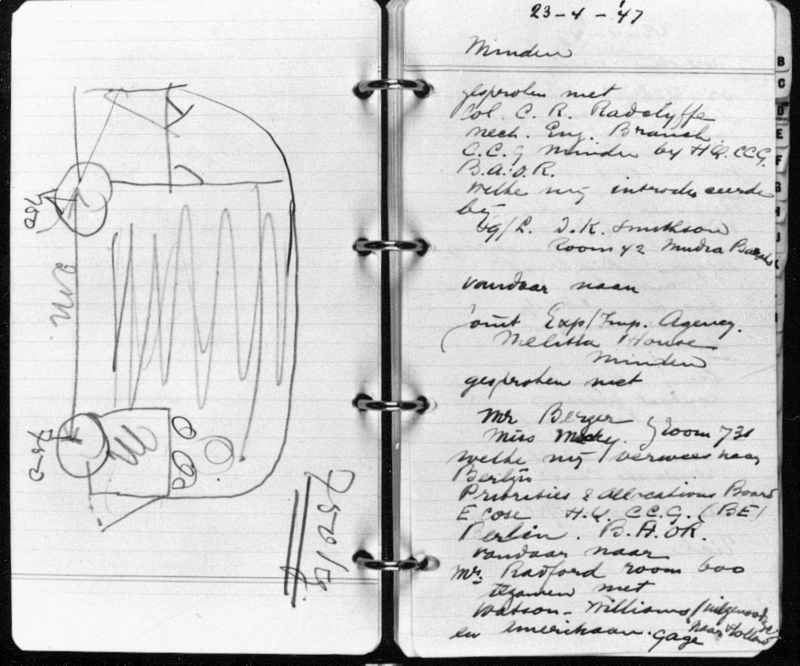 750
2 m.
750
750/kg
23-4-'47
Minden
gesproken met
Col. C. R. Radclyffe
Mech. Eng. Branch
C.C.G Minden by HQ. CCG.
B.A.O.R.
welke mij introduceerde
bij
I.K. Smithson
Room 42 Mudra
vandaar naar
Joint Exp/Imp. Agency.
Melitta House
Minden
gesproken met
Mr Berger
Miss room 731
welke mij verwees naar
Berlijn
Priorities & Allocations Board
Ecosc H.Q. C.C.G. (BE)
Berlin. B.A.O.R.
vandaar naar
Mr. Radford room 600
tezamen met
Watson-Williams
naar
en Amerikaan. Gage
B
C
D
E
F
G
H
IJ
K